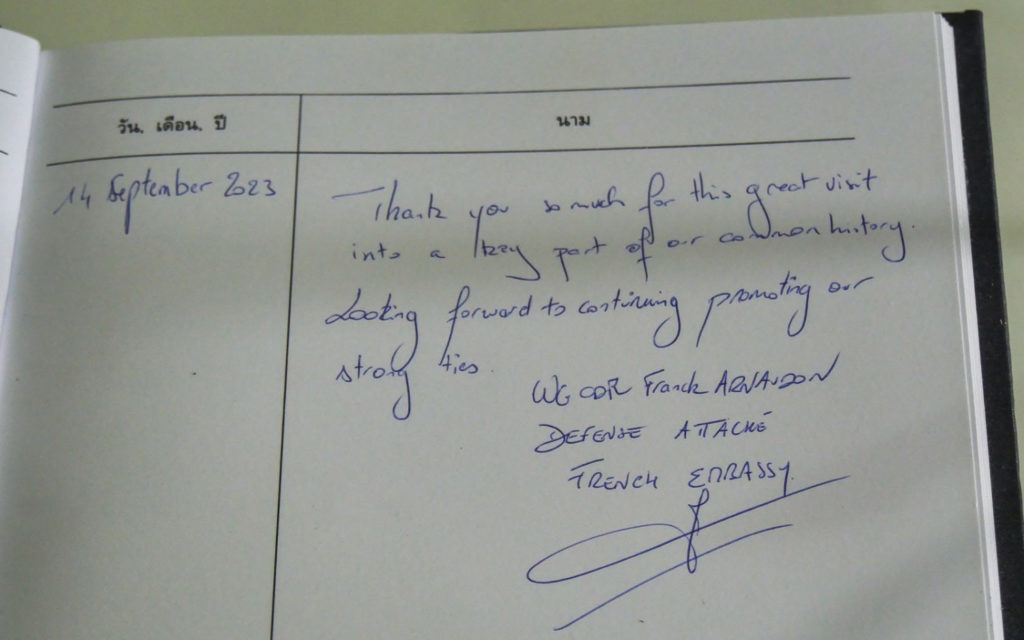 วัน. เดือน. ปี
นาม
14 September 2023
Thank you so much for this great visit
into a key part of our common history.
Looking forward to continuing promoting our
strong ties.
WG CDR Franck ARNAUDON
DEFENSE ATTACHÉ
FRENCH EMBASSY